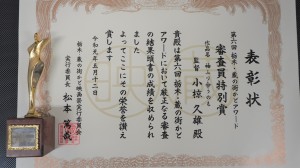 表彰状
第六回 栃木・蔵の街かどアワード
審査員特別賞
監督 小掠久雄殿
貴殿は第六回栃木・蔵の街かど
アワードにおいて厳正なる審査
の結果頭書の成績を収められ
ました
よってここにその栄誉を讃え
賞します
令和元年五月十二日
栃木・蔵の街かど映画祭実行委員会
実行委員長 松本